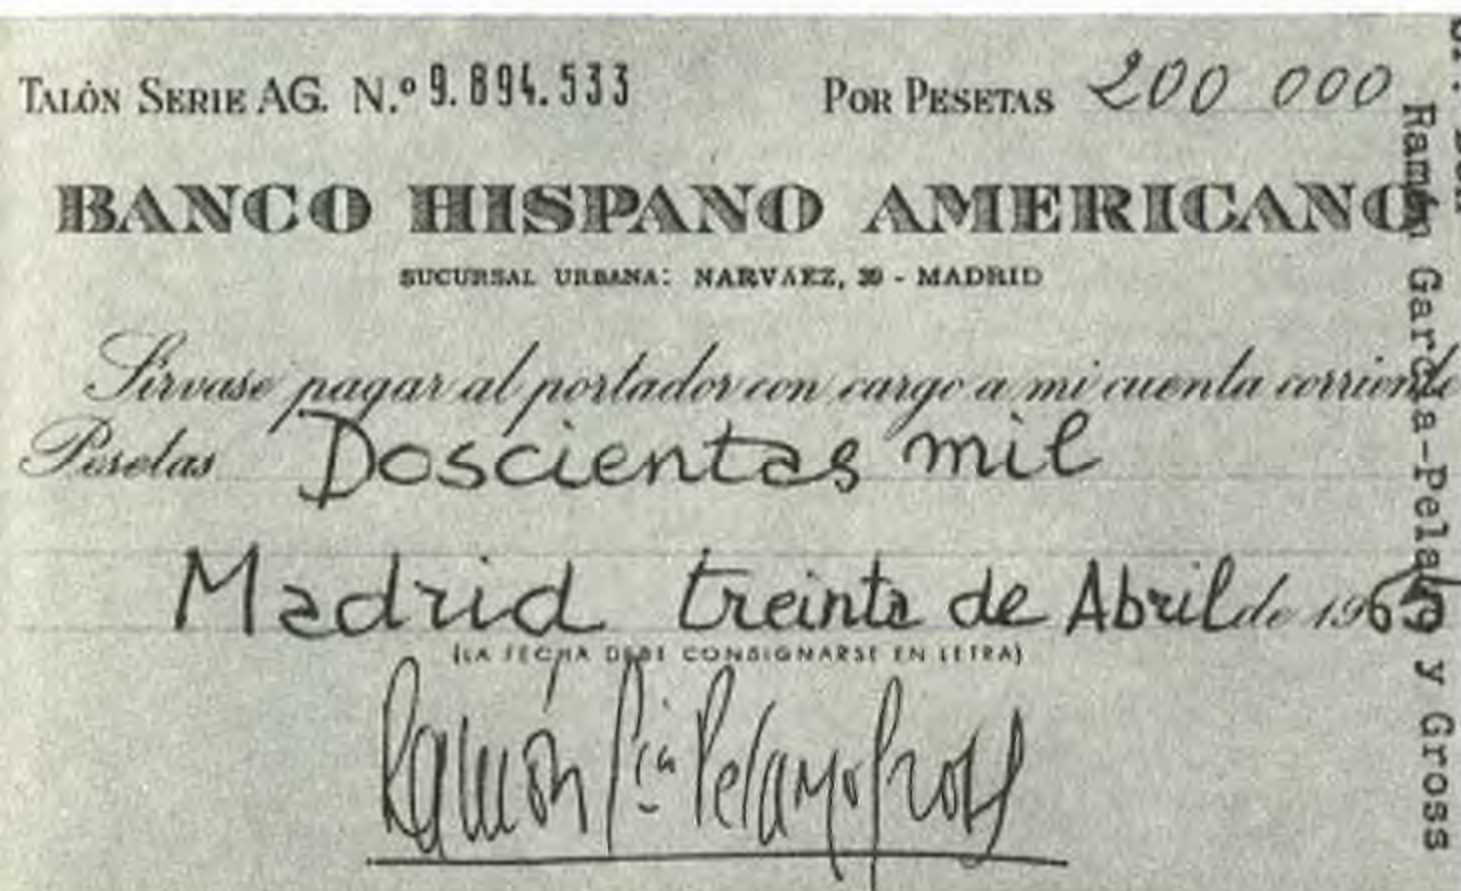 TALÓN SERIE AG. N.º 9.894.533 POR PESETAS 200 000
BANCO HISPANO AMERICANO
SUCURSAL URBANA: NARVAEZ, 39 - MADRID
Sírvase pagar al portador con cargo a mi cuenta corriente
Pesetas Doscientas mil
Madrid treinta de Abril de 1965
(LA FECHA DEBE CONSIGNARSE EN LETRA)
Ramón Gía Pelayo Gross
Ramón García-Pelayo y Gross